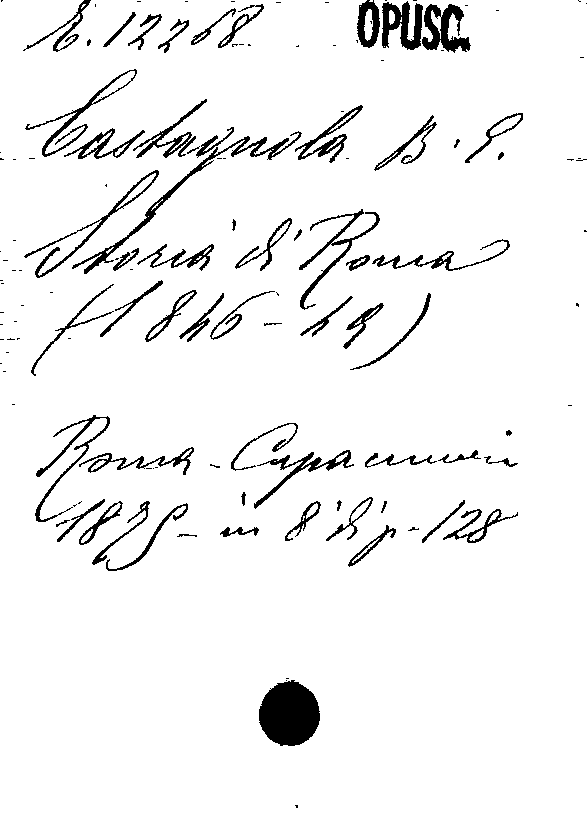 E. 12268 OPUSC.
Castagnola B. E.
Storia di Roma
(1846-49)
Roma - Capaccini
1875 - in 8° di p. 128